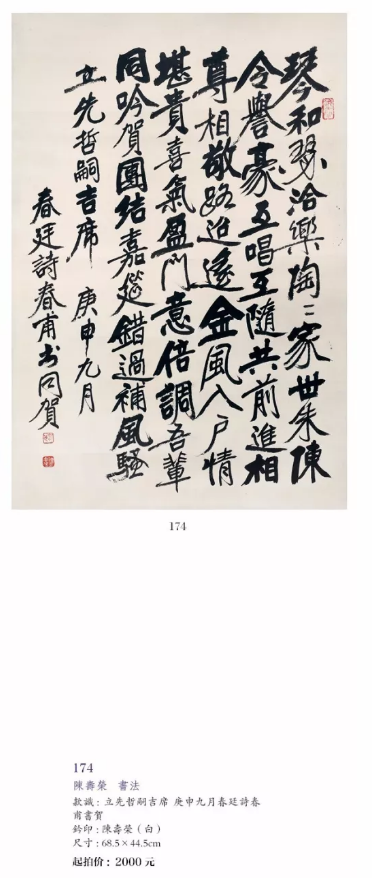 琴和瑟洽樂陶〻家世朱陳
令譽豪互唱互隨共前進相
尊相敬路迢遙金風入戶情
堪貴喜氣盈門意倍調吾輩
同吟賀團結嘉筵錯過補風騷
立先哲嗣吉席 庚申九月
春廷詩春甫书同賀
174
174
陳壽榮 書法
款識：立先哲嗣吉席 庚申九月春廷詩春
甫書賀
鈐印：陳壽榮（白）
尺寸：68.5×44.5cm
起拍价：2000 元